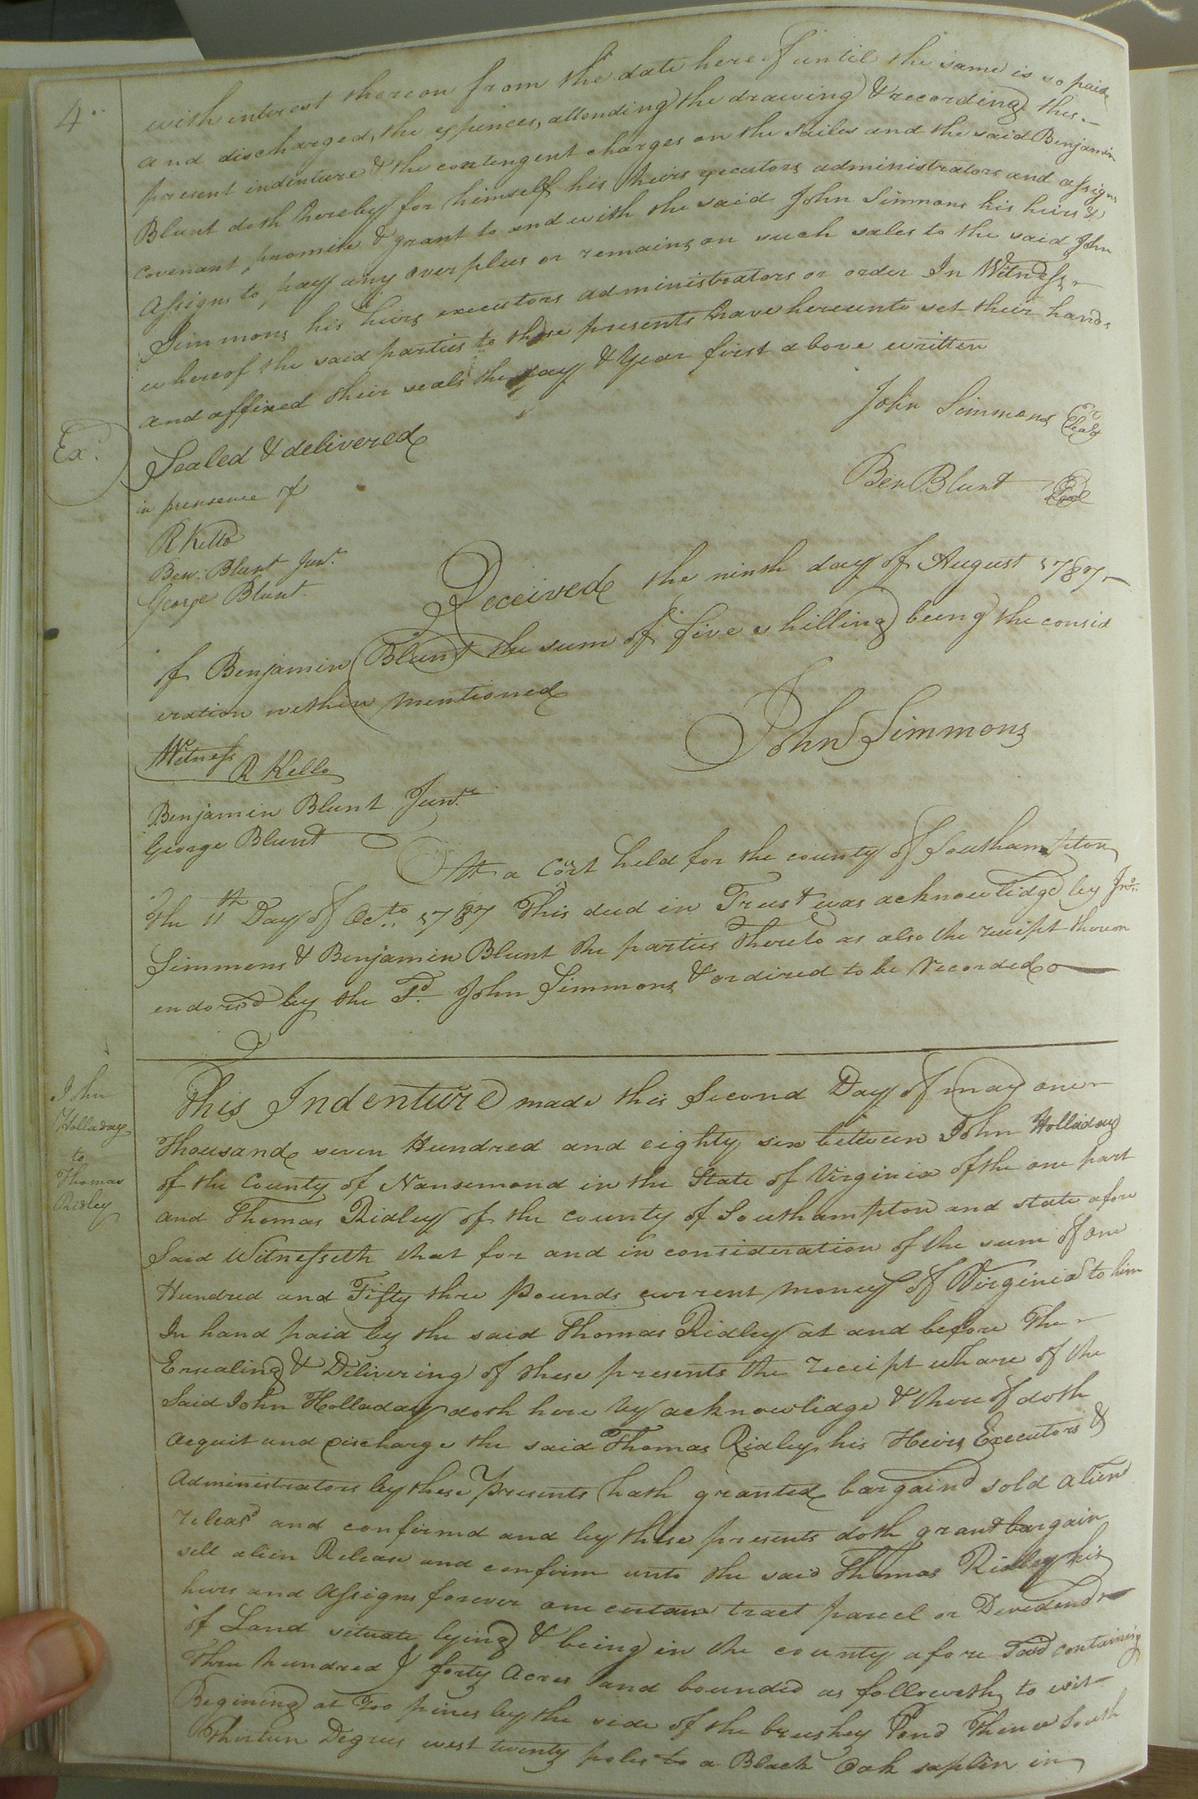 4
with interest thereon from the date hereof until the same is so paid
and discharged, the expences, attending the drawing & recording the
present indenture & the contengent charges on the sailes and the said Benjamin
Blunt doth hereby for himself his heirs executors administrators and assigns
covenant promise & grant to and with the said John Simmons his heirs &
Assigns to, pay any over plus or remains on such sales to the said John
Simmons his heirs executors administrators or order In Witness
whereof the said parties to these presents have hereunto set their hands
and affixed their seals the day & year first above written
John Simmons
Ex.
Sealed & delivered
Ben Blunt Seal
in presence of
R Kello
Ben: Blunt Junr.
George Blunt
Received the ninth day of August 1787
of Benjamin Blunt the sum of five shilling being the consid
eration within mentioned
John Simmons
Witness R Kello
Benjamin Blunt Junr.
George Blunt
At a Cort held for the county of Southampton
The 11th Day of Octo. 1787 This deed in Trust was acknowlidge by Jno.
Simmons & Benjamin Blunt the parties Thereto as also the receipt thereon
endorsd by the Sd. John Simmons & ordired to be recorded
John
Holladay
to
Thomas
Ridley
This Indenture made this Second Day of may one
Thousand seven Hundred and eighty six between John Holladay
of the County of Nansemond in the State of Virginia of the one part
and Thomas Ridley of the county of Southampton and state afore
Said Witnesseth that for and in consideration of the sum of one
Hundred and Fifty three Pounds current money of Virginia to him
In hand paid by the said Thomas Ridley at and before The
Ensealing & Delivering of these presents the receipt whare of the
Said John Holladay doth here by acknowlidge & there of doth
Acquit and Discharge the said Thomas Ridley his Heirs Executors &
Administrators by these Presents hath granted bargaind sold alien
releasd and confirmd and by these presents doth grant bargain
sell alien Release and confirm unto the said Thomas Ridley his
heirs and Assigns forever one certain tract parcel or Devedend
of Land situate lying & being in the county afore Said containing
Three hundred & forty Acres and bounded as followeth to wit
Begining at Too pines by the side of the brushey Pond Thence South
Thirteen Degrees west twenty poles to a Black Oak saplin in